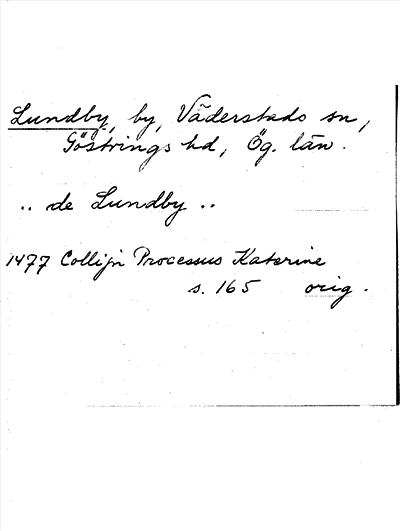 Lundby, by, Väderstads sn,
Göstrings hd, Ög. län.
.. de Lundby ..
1477 Collijn Processus Katerine
s. 165 orig.